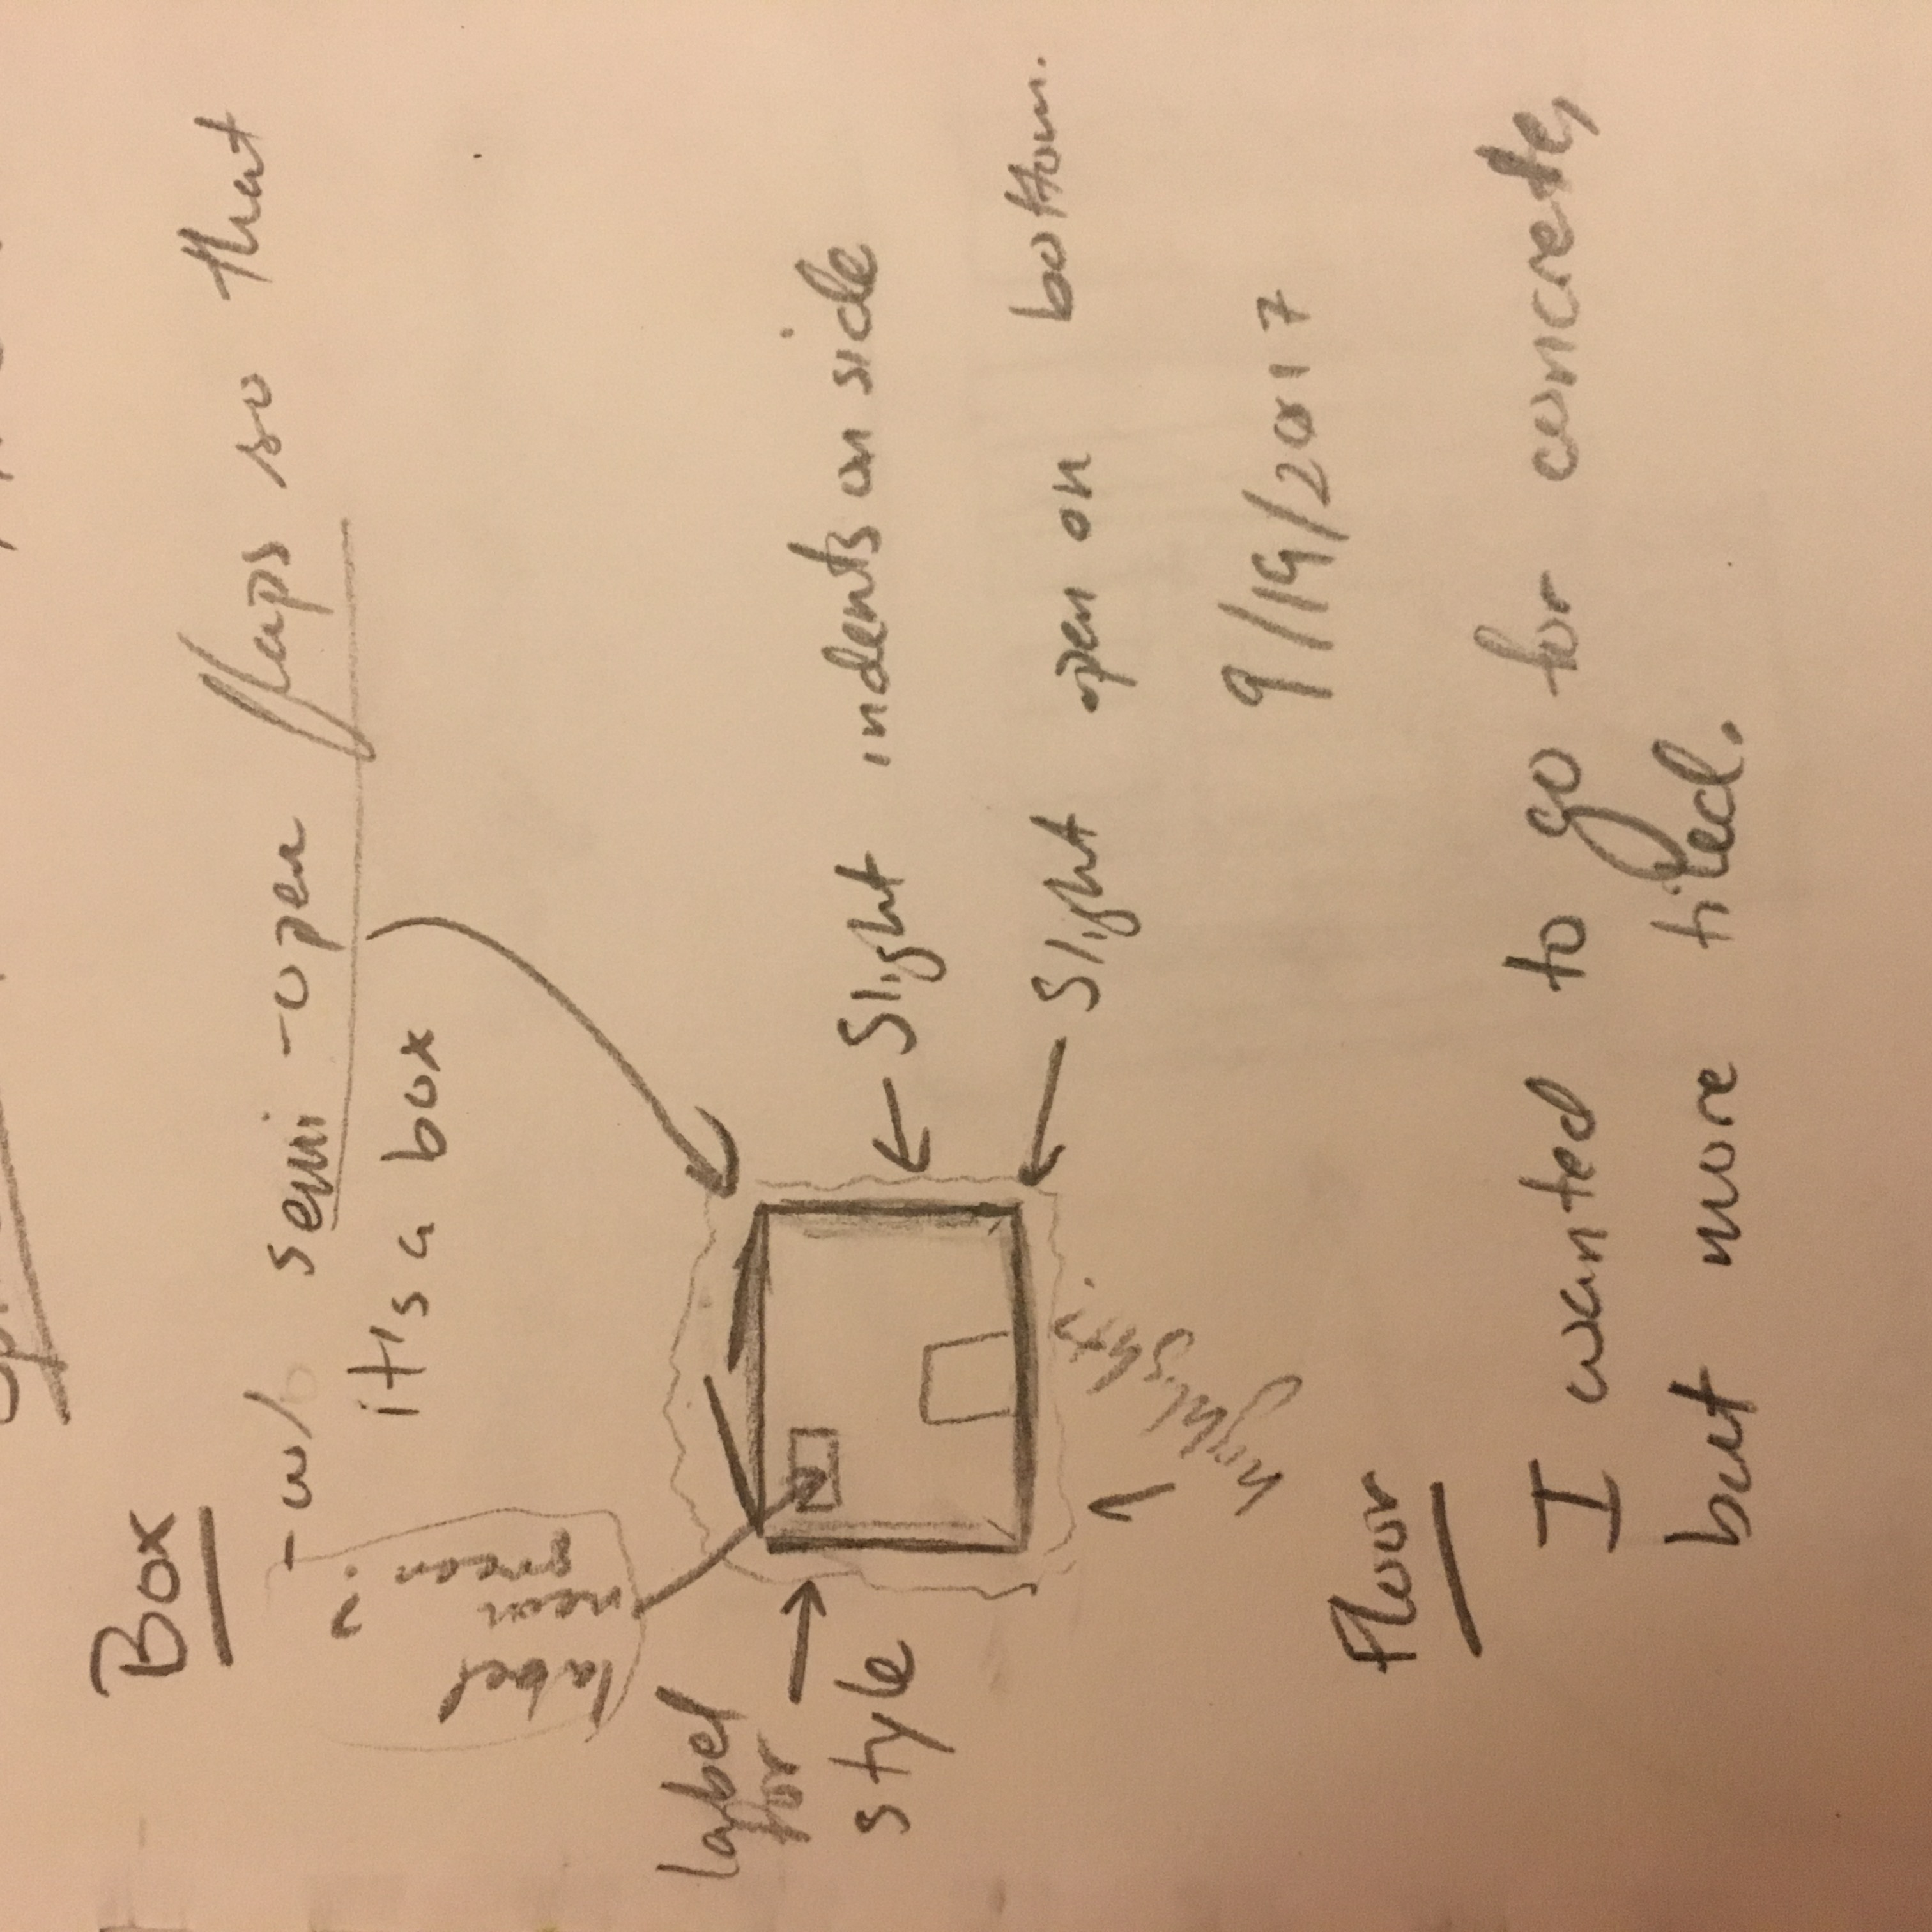 Box
- w/ semi-open flaps so that
it's a box
label
neon
green?
label
for
style
Slight indents on side
Slight open on bottom.
highlight?
9/19/2017
Floor
I wanted to go for concrete,
but more tiled.